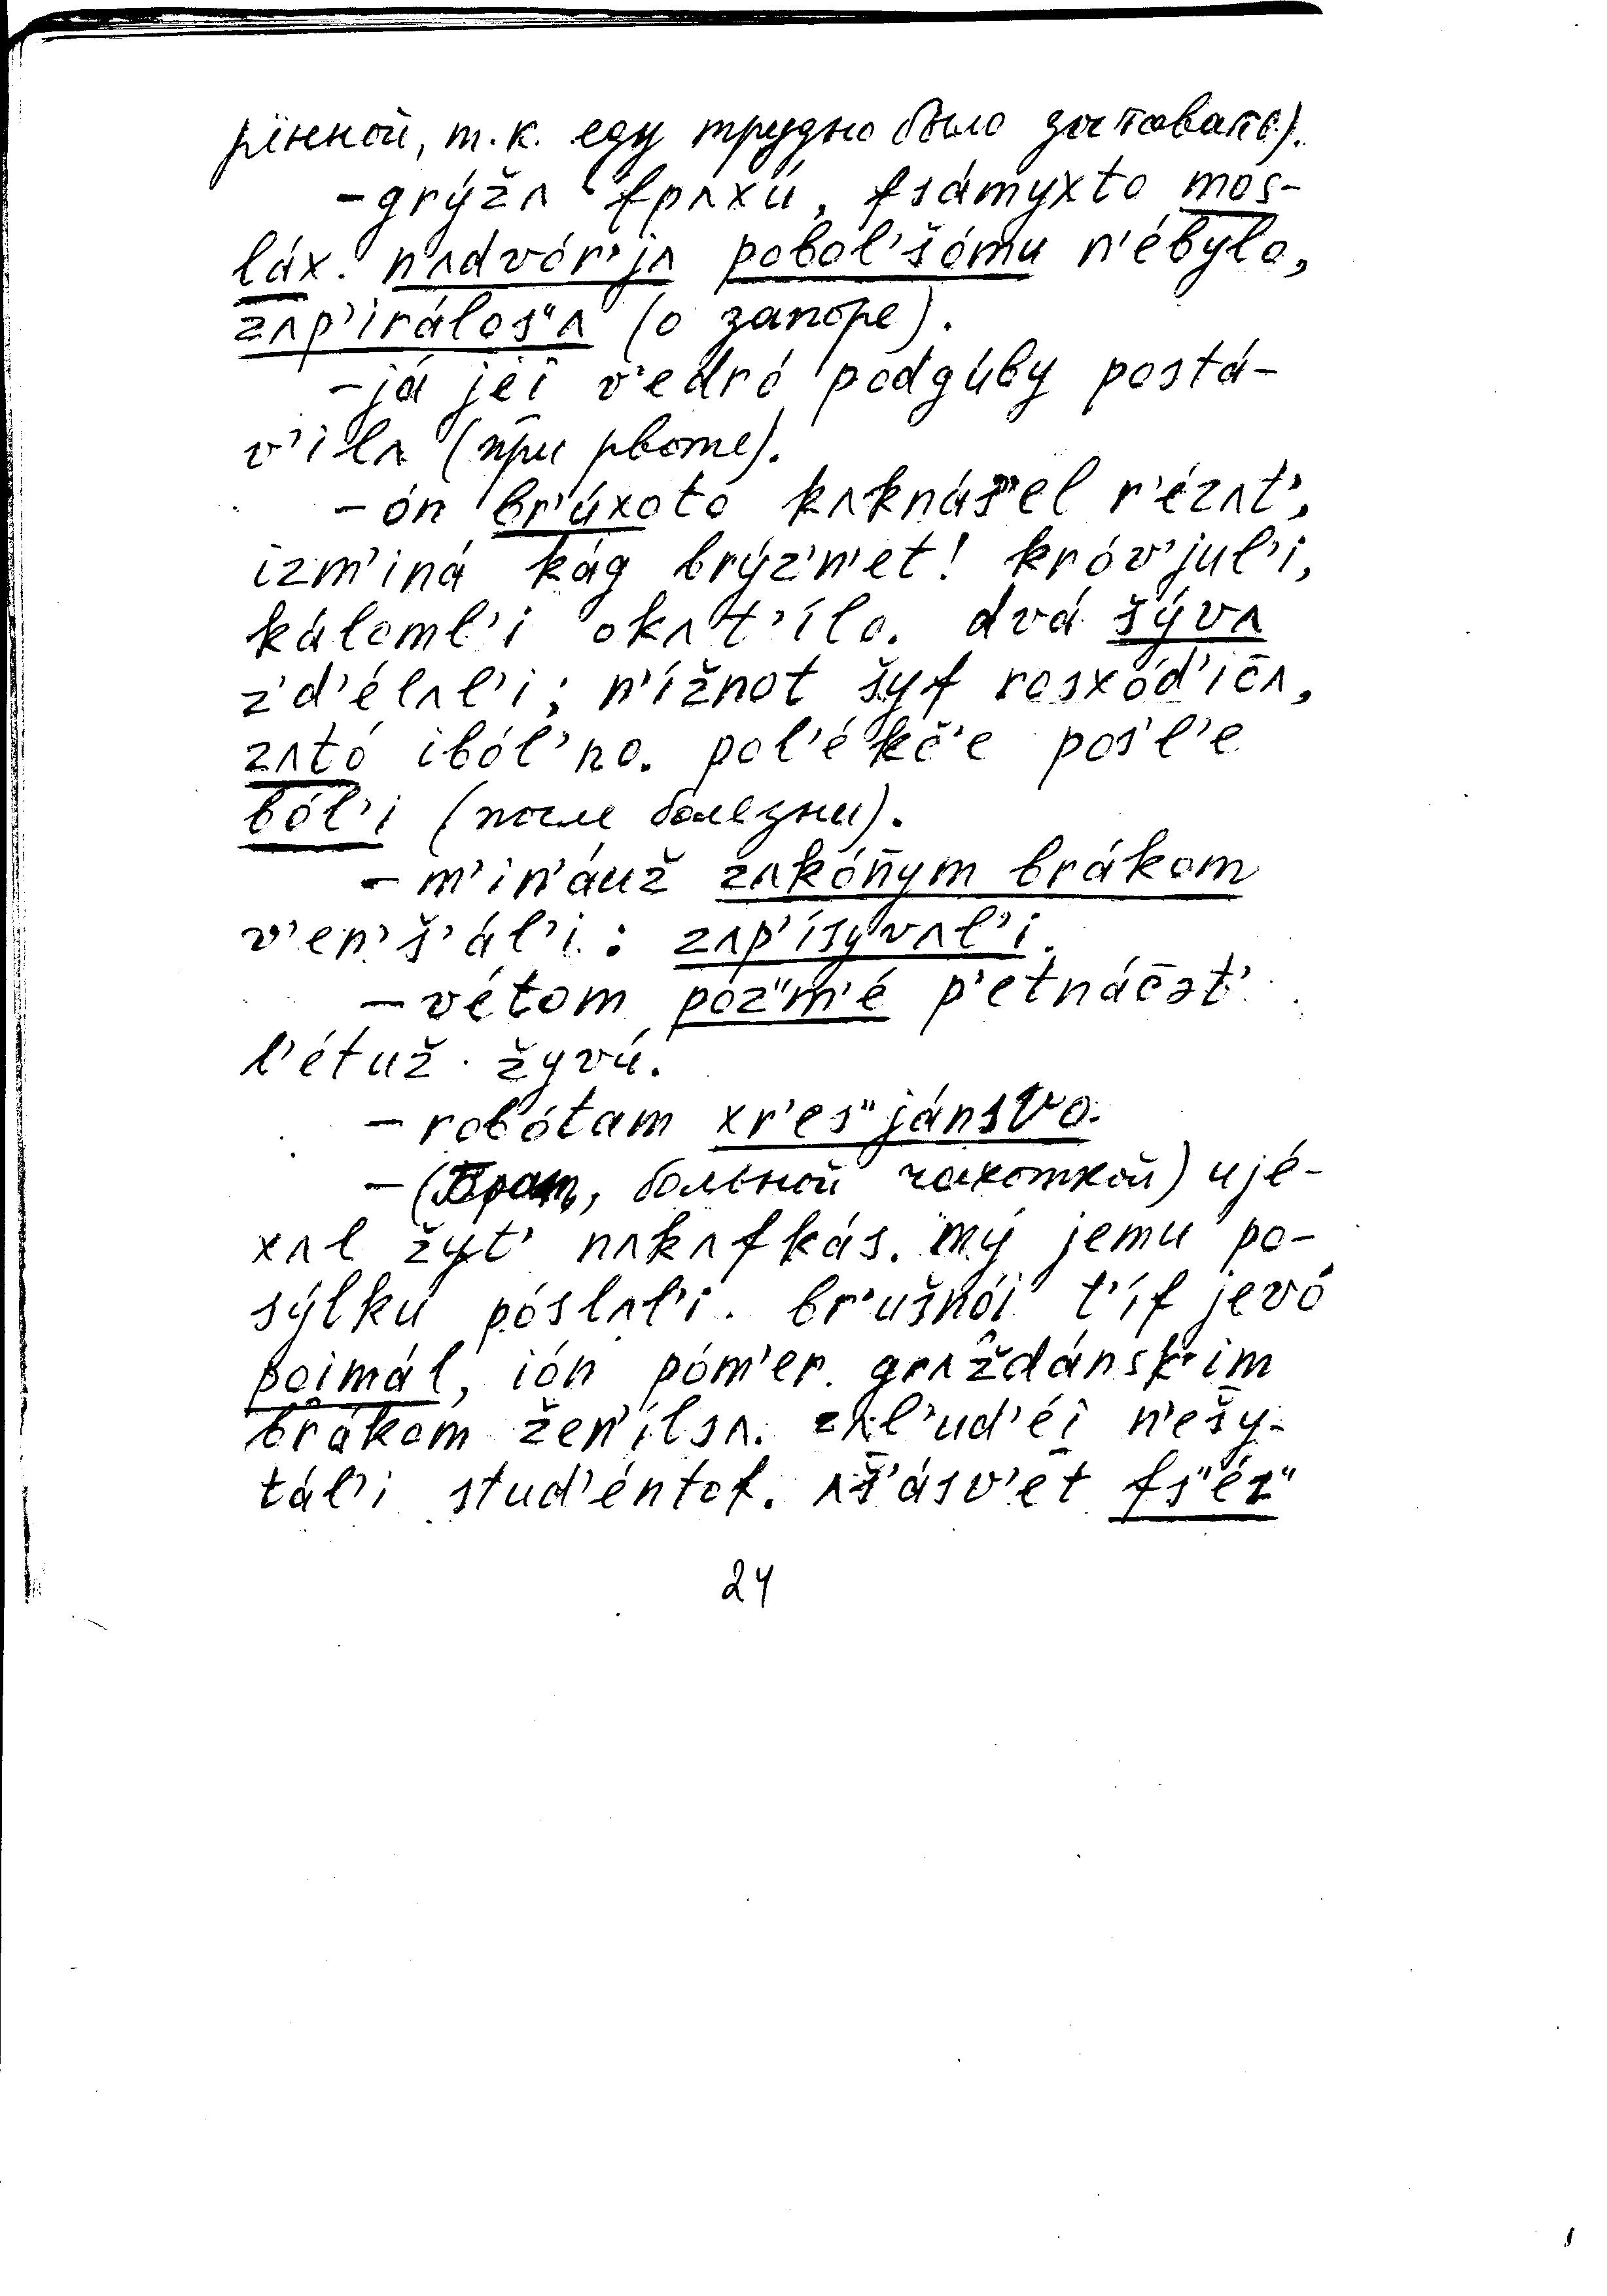 рѣнной, т.к. еду трудно было глотать).
– grýžʌ fpʌxú, fsámyxto mos-
láx. nʌdvór'jʌ pobol'šómu n'ébylo,
zʌp'irálos"ʌ (о запоре).
– já jeĭ v'edró podgúby postá-
v'ilʌ (при рвоте).
– ón br'úxoto kʌknáš'el r'ézʌt',
izm'iná kág brýz'n'et! króv'jul'i,
káloml'i okʌt'ílo. dvá šývʌ
z'd'élʌl'i; n'ížnot šyf rosxód'ic̄ʌ,
zʌtó iból'no. pol'ékč'e pos'l'e
ból'i (после болезни).
– m'in'áuž zʌkón̄ym brákom
v'en'š'ál'i: zʌp'ísyvʌl'i.
– vétom poz"m'é p'etnác̄ət'
l'étuž žyvú.
– robótam xr'es"jánsvo.
– (Брат, больной чахоткой) ujé-
xʌl žyt' nʌkʌfkás. mý jemu po-
sýlku póslʌl'i. br'ušnóĭ t'íf jevó
poimál, ión póm'er. grʌždánsk'im
brákom žen'ílsʌ. zʌl'ud'éĭ n'ešy-
tál'i stud'éntof. ʌš̄'ásv'et fs"éz"
24